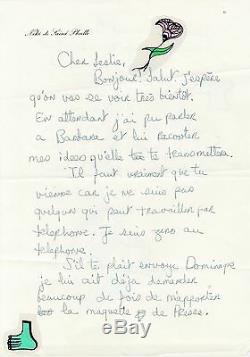 Niki de Saint Phalle
Cher Leslie,
Bonjour! Salut J'espère
qu'on vas se voir très bientôt.
En attendant j'ai pu parler
a Barbara et lui raconter
mes idees qu'elle te transmettra.
Il faut vraiment que tu
vienne car je ne suis pas
quelqun qui peut travailler par
telephone. Je suis zero au
telephone.
S'il te plait envoye Dominique
je lui ait déja demander
beaucoup de fois de m'apporter
la maquette de